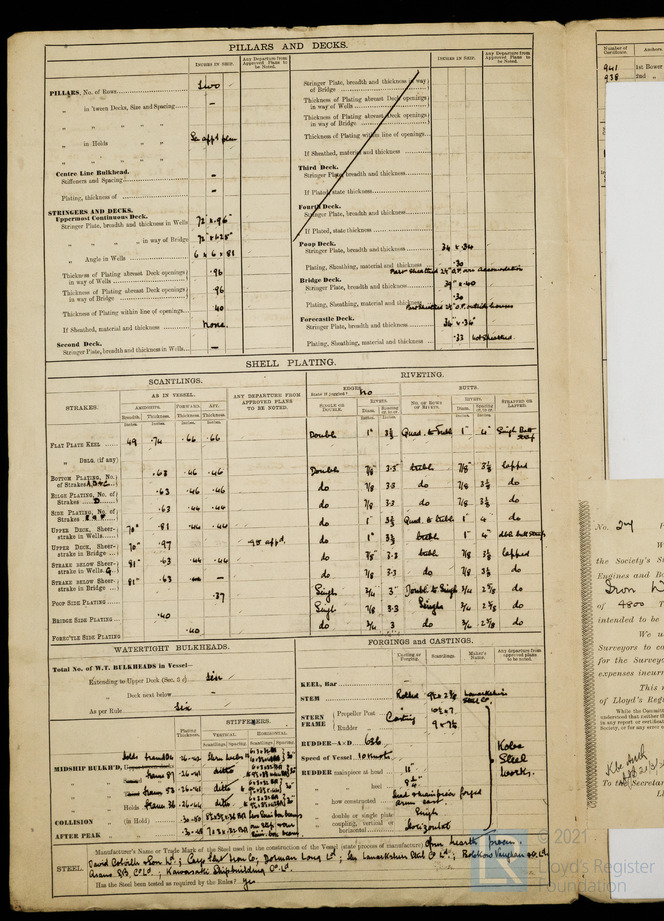 PILLARS AND DECKS.
INCHES IN SHIP.
Any Departure from Approved Plans to be Noted.
PILLARS, No. of Rows
Two
in 'tween Decks, Size and Spacing
in Holds
Se appd plan
Centre Line Bulkhead.
Stiffeners and Spacing
Plating, thickness of
STRINGERS AND DECKS.
Uppermost Continuous Deck.
Stringer Plate, breadth and thickness in Wells
72" x .96"
in way of Bridge
Angle in Wells
6 x 6 x .81
Thickness of Plating abreast Deck openings in way of Wells
.96
Thickness of Plating abreast Deck openings in way of Bridge
.96
Thickness of Plating within line of openings
.40
If Sheathed, material and thickness
None.
Second Deck.
Stringer Plate, breadth and thickness in Wells
INCHES IN SHIP.
Any Departure from Approved Plans to be Noted.
Stringer Plate, breadth and thickness in way of Bridge
Thickness of Plating abreast Deck openings in way of Wells
Thickness of Plating abreast Deck openings in way of Bridge
Thickness of Plating within line of openings
If Sheathed, material and thickness
Third Deck.
Stringer Plate, breadth and thickness
If Plated, state thickness
Fourth Deck.
Stringer Plate, breadth and thickness
If Plated, state thickness
Poop Deck.
Stringer Plate, breadth and thickness
34 x .34
Plating, Sheathing, material and thickness
.30
Bridge Deck.
Stringer Plate, breadth and thickness
39" x .40
Plating, Sheathing, material and thickness
.30
Forecastle Deck.
Stringer Plate, breadth and thickness
34" x .34"
Plating, Sheathing, material and thickness
.33 not Sheathed.
SHELL PLATING.
SCANTLINGS.
RIVETING.
STRAKES.
AS IN VESSEL.
ANY DEPARTURE FROM APPROVED PLANS TO BE NOTED.
EDGES.
State if joggled? No
BUTTS.
AMIDSHIPS.
FORWARD.
AFT.
Breadth.
Thickness.
Thickness.
Thickness.
SINGLE OR DOUBLE.
RIVETS.
Diam.
Spacing cr. to cr.
NO. OF ROWS OF RIVETS.
RIVETS.
Diam.
Spacing cr. to cr.
STRAPPED OR LAPPED.
FLAT PLATE KEEL
49 .74 .66 .66 Double 1" 3½ Quad. to treble 1" 4" Single Butt Strap
DBLG. (if any)
BOTTOM PLATING, No. of Strakes
.63 .46 .46 Double 7/8" 3.3" treble 7/8 3½ lapped
BILGE PLATING, No. of Strakes D
.63 .46 .46 do 7/8 3.3 do 7/8 3½ do
SIDE PLATING, No. of Strakes E & F
.63 .44 .44 do 7/8 3.3 do 7/8 3½ do
UPPER DECK, Sheerstrake in Wells
70" .81 .44 .44 do 1" 3½ Quad. to treble 1" 4 do
UPPER DECK, Sheerstrake in Bridge
70" .97 .95 appd. do 1" 3½ treble 1" 4 dble butt straps
STRAKE BELOW Sheerstrake in Wells G
81" .63 .44 .44 do 7/8 3.3 treble 7/8 3½ lapped
STRAKE BELOW Sheerstrake in Bridge
81" .63 do 7/8 3.3 do 7/8 3½ do
POOP SIDE PLATING
.37 Single 3/4 3" Double to Single 3/4 2 5/8 do
BRIDGE SIDE PLATING
.40 Single 7/8 3.3 Single 3/4 2 5/8 do
FORECSTLE SIDE PLATING
.40 do 3/4 3 do 3/4 2 5/8 do
WATERTIGHT BULKHEADS.
Total No. of W.T. BULKHEADS in Vessel—
Extending to Upper Deck (Sec. 3 c)
Six
Deck next below
As per Rule
Six
Plating Thickness.
STIFFENERS.
VERTICAL.
HORIZONTAL.
Scantlings
Spacing
Scantlings
Spacing
MIDSHIP BULKH'D,
ditto
frame 53
ditto
Holds frame 36
ditto
COLLISION (in Hold)
AFTER PEAK
FORGINGS and CASTINGS.
Casting or Forging.
Scantlings.
Maker's Name.
Any departure from approved plans to be noted.
KEEL, Bar
STEM
Rolled
Lanarkshire Steel Co.
STERN FRAME
Propeller Post
Casting
10 x 7
Rudder
9 x 7½
RUDDER—A×D
686
Speed of Vessel 10 knots
RUDDER mainpiece at head
11"
heel
how constructed
double or single plate
Single
coupling, vertical or horizontal
Horizontal
Kobe Steel Works.
STEEL.
Manufacturer's Name or Trade Mark of the Steel used in the construction of the Vessel (state process of manufacture) Open hearth process.
David Colville & Sons Ld; Cargo Fleet Iron Co; Dorman Long Ld; The Lanarkshire Steel Co Ld; Bolckow Vaughan & Co. Ld
Kawasaki Shipbuilding Co. Ld.
Has the Steel been tested as required by the Rules? Yes
Number of Certificate.
Anchors.
941 1st Bower
938 2nd
No. 24
the Society's
Engines and Bo
of 4800 T
intended to be
We u
Surveyors to co
for the Surveyo
expenses incurr
This
of Lloyd's Regist
While the Committe
understood that neither th
in any report or certificat
Society, or for any error
Kobe
To the Secretar
© 2021
Lloyd's Register
Foundation